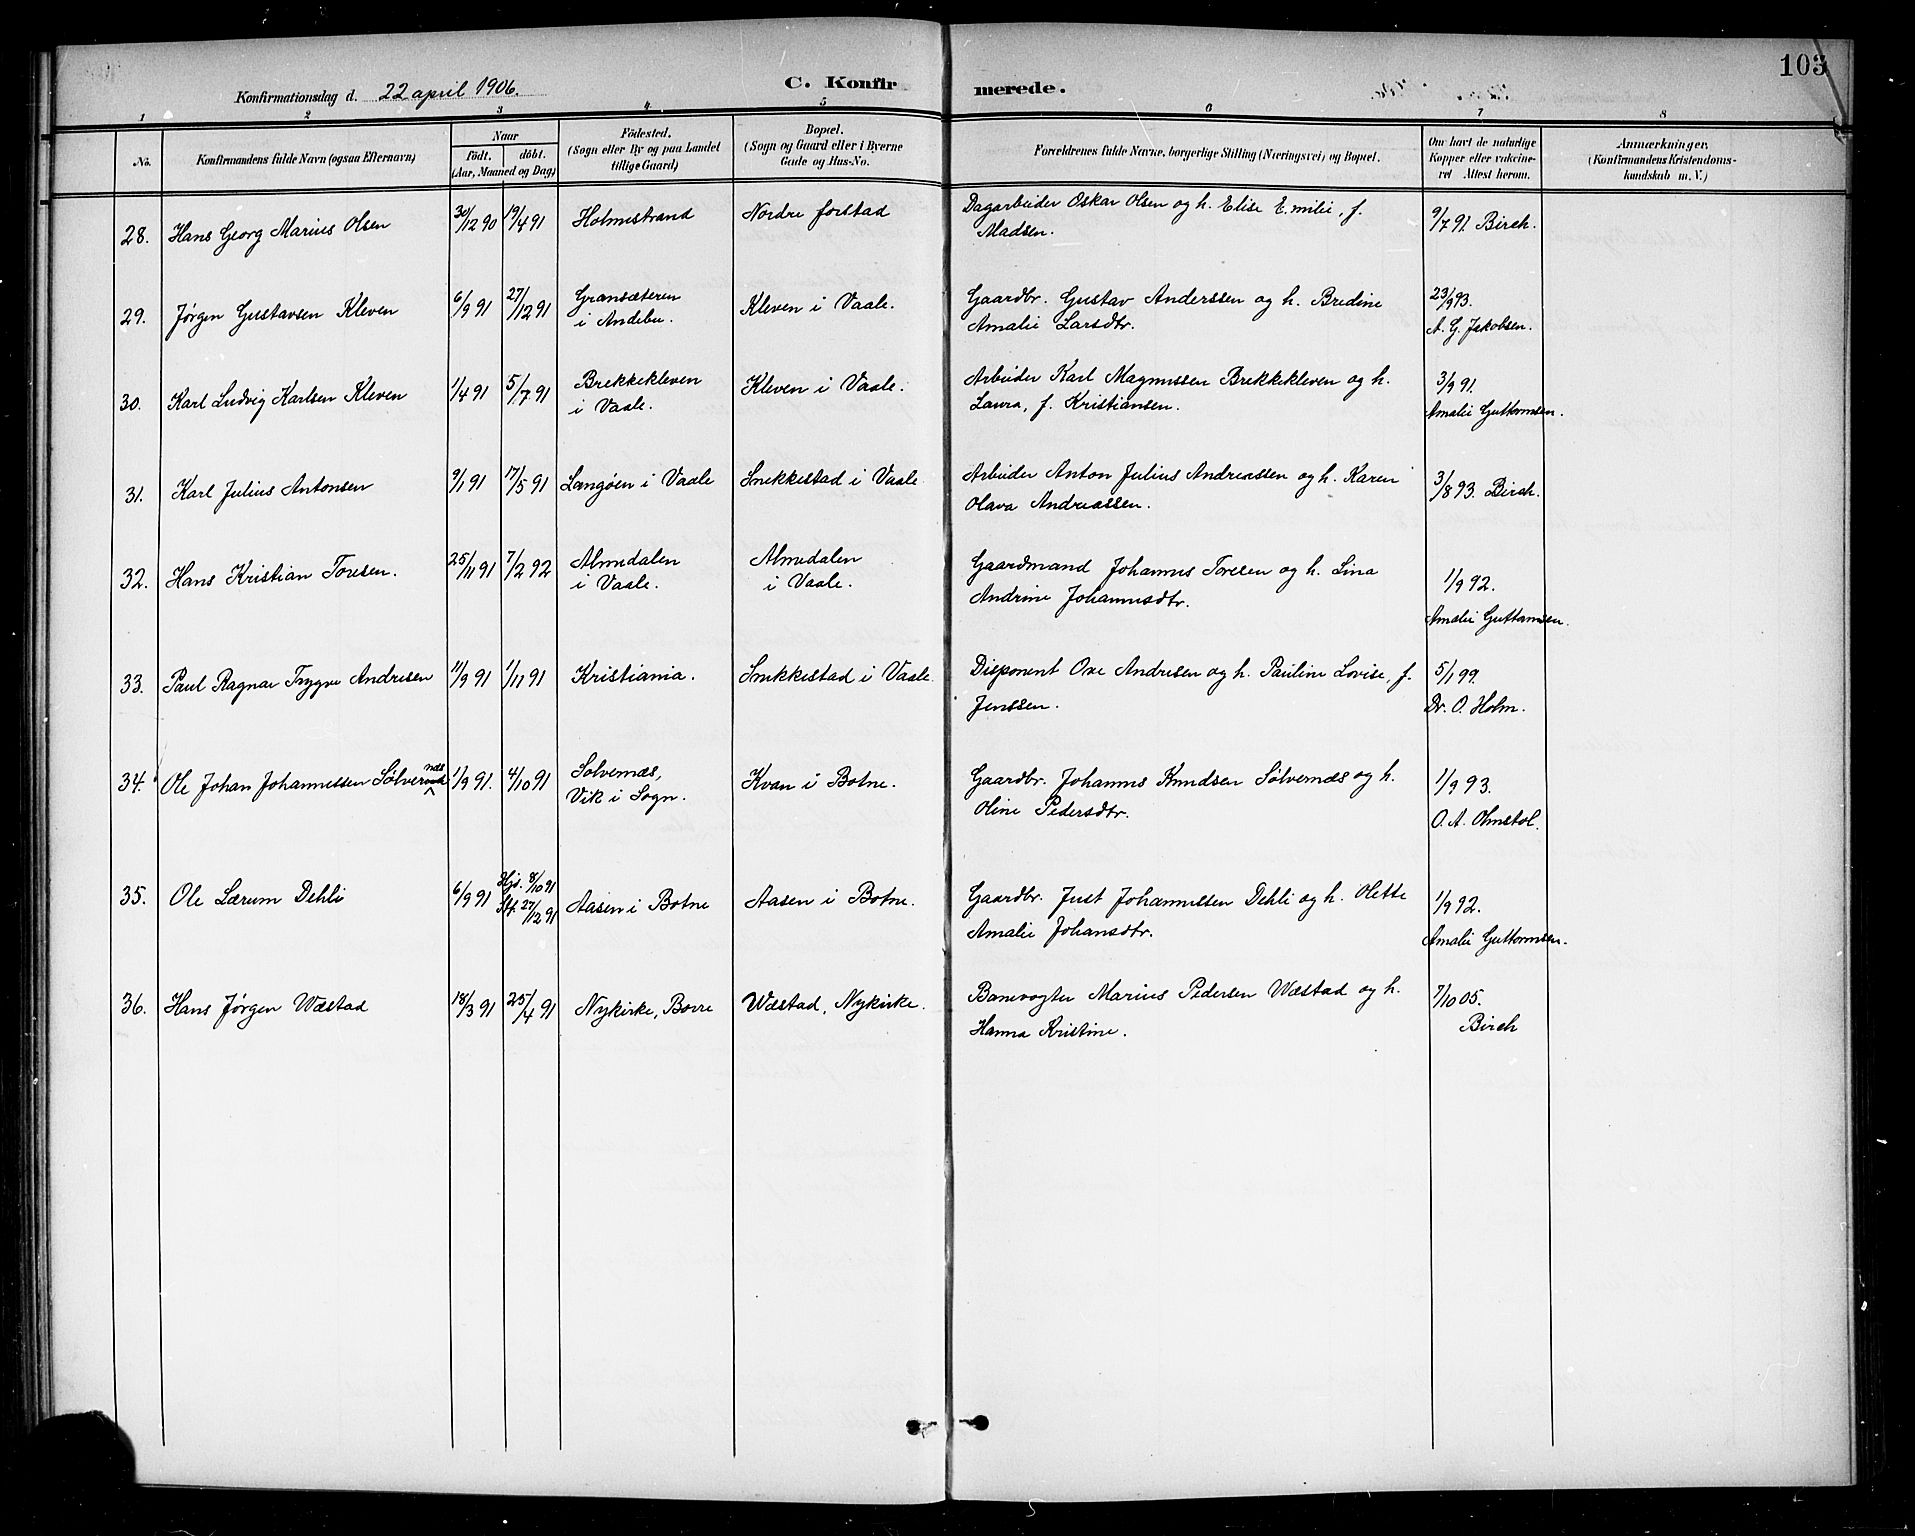 103
C. Konfirmerede.
Konfirmationsdag d. 22 april 1906.
1 2 3 4 5 6 7 8
No.
Konfirmandens fulde Navn (ogsaa Efternavn)
Naar
födt. döbt.
(Aar, Maaned og Dag)
Födested.
(Sogn eller By og paa Landet
tillige Gaard)
Bopæl.
(Sogn og Gaard eller i Byerne
Gade og Hus-No.
Forældrenes fulde Navne, borgerlige Stilling (Næringsvei) og Bopæl.
Om havt de naturlige
Kopper eller vakcine-
ret Attest herom.
Anmærkninger.
(Konfirmandens Kristendoms-
kundskab m. V.)
28. Hans Georg Marius Olsen 30/12 90 19/4 91 Holmestrand Nordre forstad Dagarbeider Oskar Olsen og h. Elise Emilie, f. 9/7 91 Birch.
Madsen.
29. Jørgen Gustavsen Kleven 6/9 91 27/12 91 Gransæteren Kleven i Vaale. Gaardbr. Gustav Anderssen og h. Bredine 23/9 93.
i Andebu. Amalie Larsdtr. A. G. Jakobsen.
30. Karl Ludvig Karlsen Kleven 1/4 91 5/7 91 Brekkekleven Kleven i Vaale. Arbeider Karl Magnussen Brekkekleven og h. 3/9 91.
i Vaale. Laura, f. Kristiansen. Amalie Guttormsen.
31. Karl Julius Antonsen 9/1 91 17/5 91 Langøen i Vaale Snekkestad i Vaale Arbeider Anton Julius Andreassen og h. Karen 3/8 93. Birch.
Olava Andreassen.
32. Hans Kristian Toresen. 25/11 91 7/2 92 Almedalen Almedalen Gaardmand Johannes Toresen og h. Lina 1/9 92.
i Vaale. i Vaale. Andrine Johannesdtr. Amalie Guttormsen.
33. Paul Ragnar Trygve Andresen 11/9 91 1/11 91 Kristiania. Snekkestad i Vaale. Disponent Ove Andresen og h. Pauline Lovise, f. 5/1 99.
Jenssen. Dr. O. Holm.
34. Ole Johan Johannessen Sølvernæs 1/9 91. 4/10 91 Solvernæs, Kvan i Botne. Gaardbr. Johannes Knudsen Sølvernæs og h. 1/9 93.
Vik i Sogn. Oline Pedersdtr. O. A. Ohnstol.
35. Ole Lærum Dehli 6/9 91 Hjs. 8/10 91 Stf. 27/12 91 Aasen i Botne Aasen i Botne. Gaardbr. Just Johannessen Dehli og h. Olette 1/9 92.
Amalie Johansdtr. Amalie Guttormsen.
36. Hans Jørgen Wæstad 18/3 91 25/4 91 Nykirke, Borre Wæstad, Nykirke. Banevogter Marius Pedersen Wæstad og h. 7/10 05.
Hanna Kristine. Birch